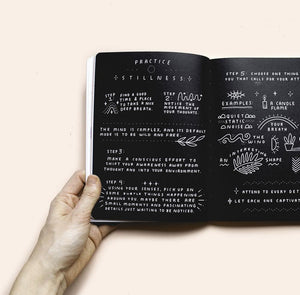 PRACTICE
STILLNESS
STEP 1:
FIND A GOOD
TIME & PLACE
TO TAKE A NICE
DEEP BREATH.
STEP 2:
NOTICE THE
MOVEMENT OF
YOUR THOUGHTS.
THE MIND IS COMPLEX, AND ITS DEFAULT
MODE IS TO BE WILD AND FREE.
STEP 3:
MAKE A CONSCIOUS EFFORT TO
SHIFT YOUR AWARENESS AWAY FROM
THOUGHT AND INTO YOUR ENVIRONMENT.
STEP 4:
USING YOUR SENSES, PICK UP ON
SOME SUBTLE THINGS HAPPENING
AROUND YOU. MAYBE THERE ARE
SMALL MOMENTS AND FASCINATING
DETAILS JUST WAITING TO BE NOTICED.
STEP 5: CHOOSE ONE THING
YOU THAT CALLS FOR YOUR ATT
EXAMPLES
A CANDLE
FLAME
QUIET
STATIC
NOISE
YOUR
BREATH
THE
WIND
AN
INTERESTING
SHAPE
ATTEND TO EVERY DET
LET EACH ONE CAPTIVAT